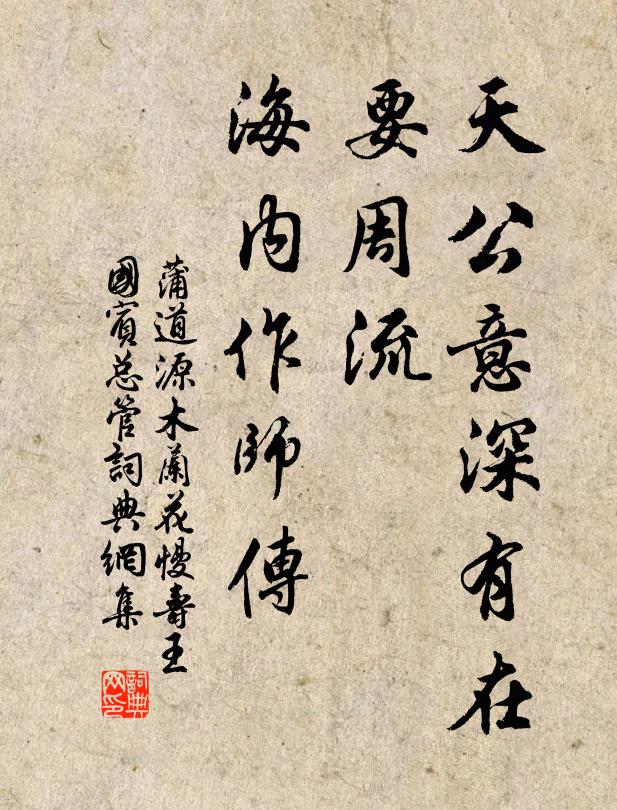 天公意深有在
要周流
海内作師傅
蒲道源木蘭花慢壽王
國賓总管詞典網集
詞典
网印